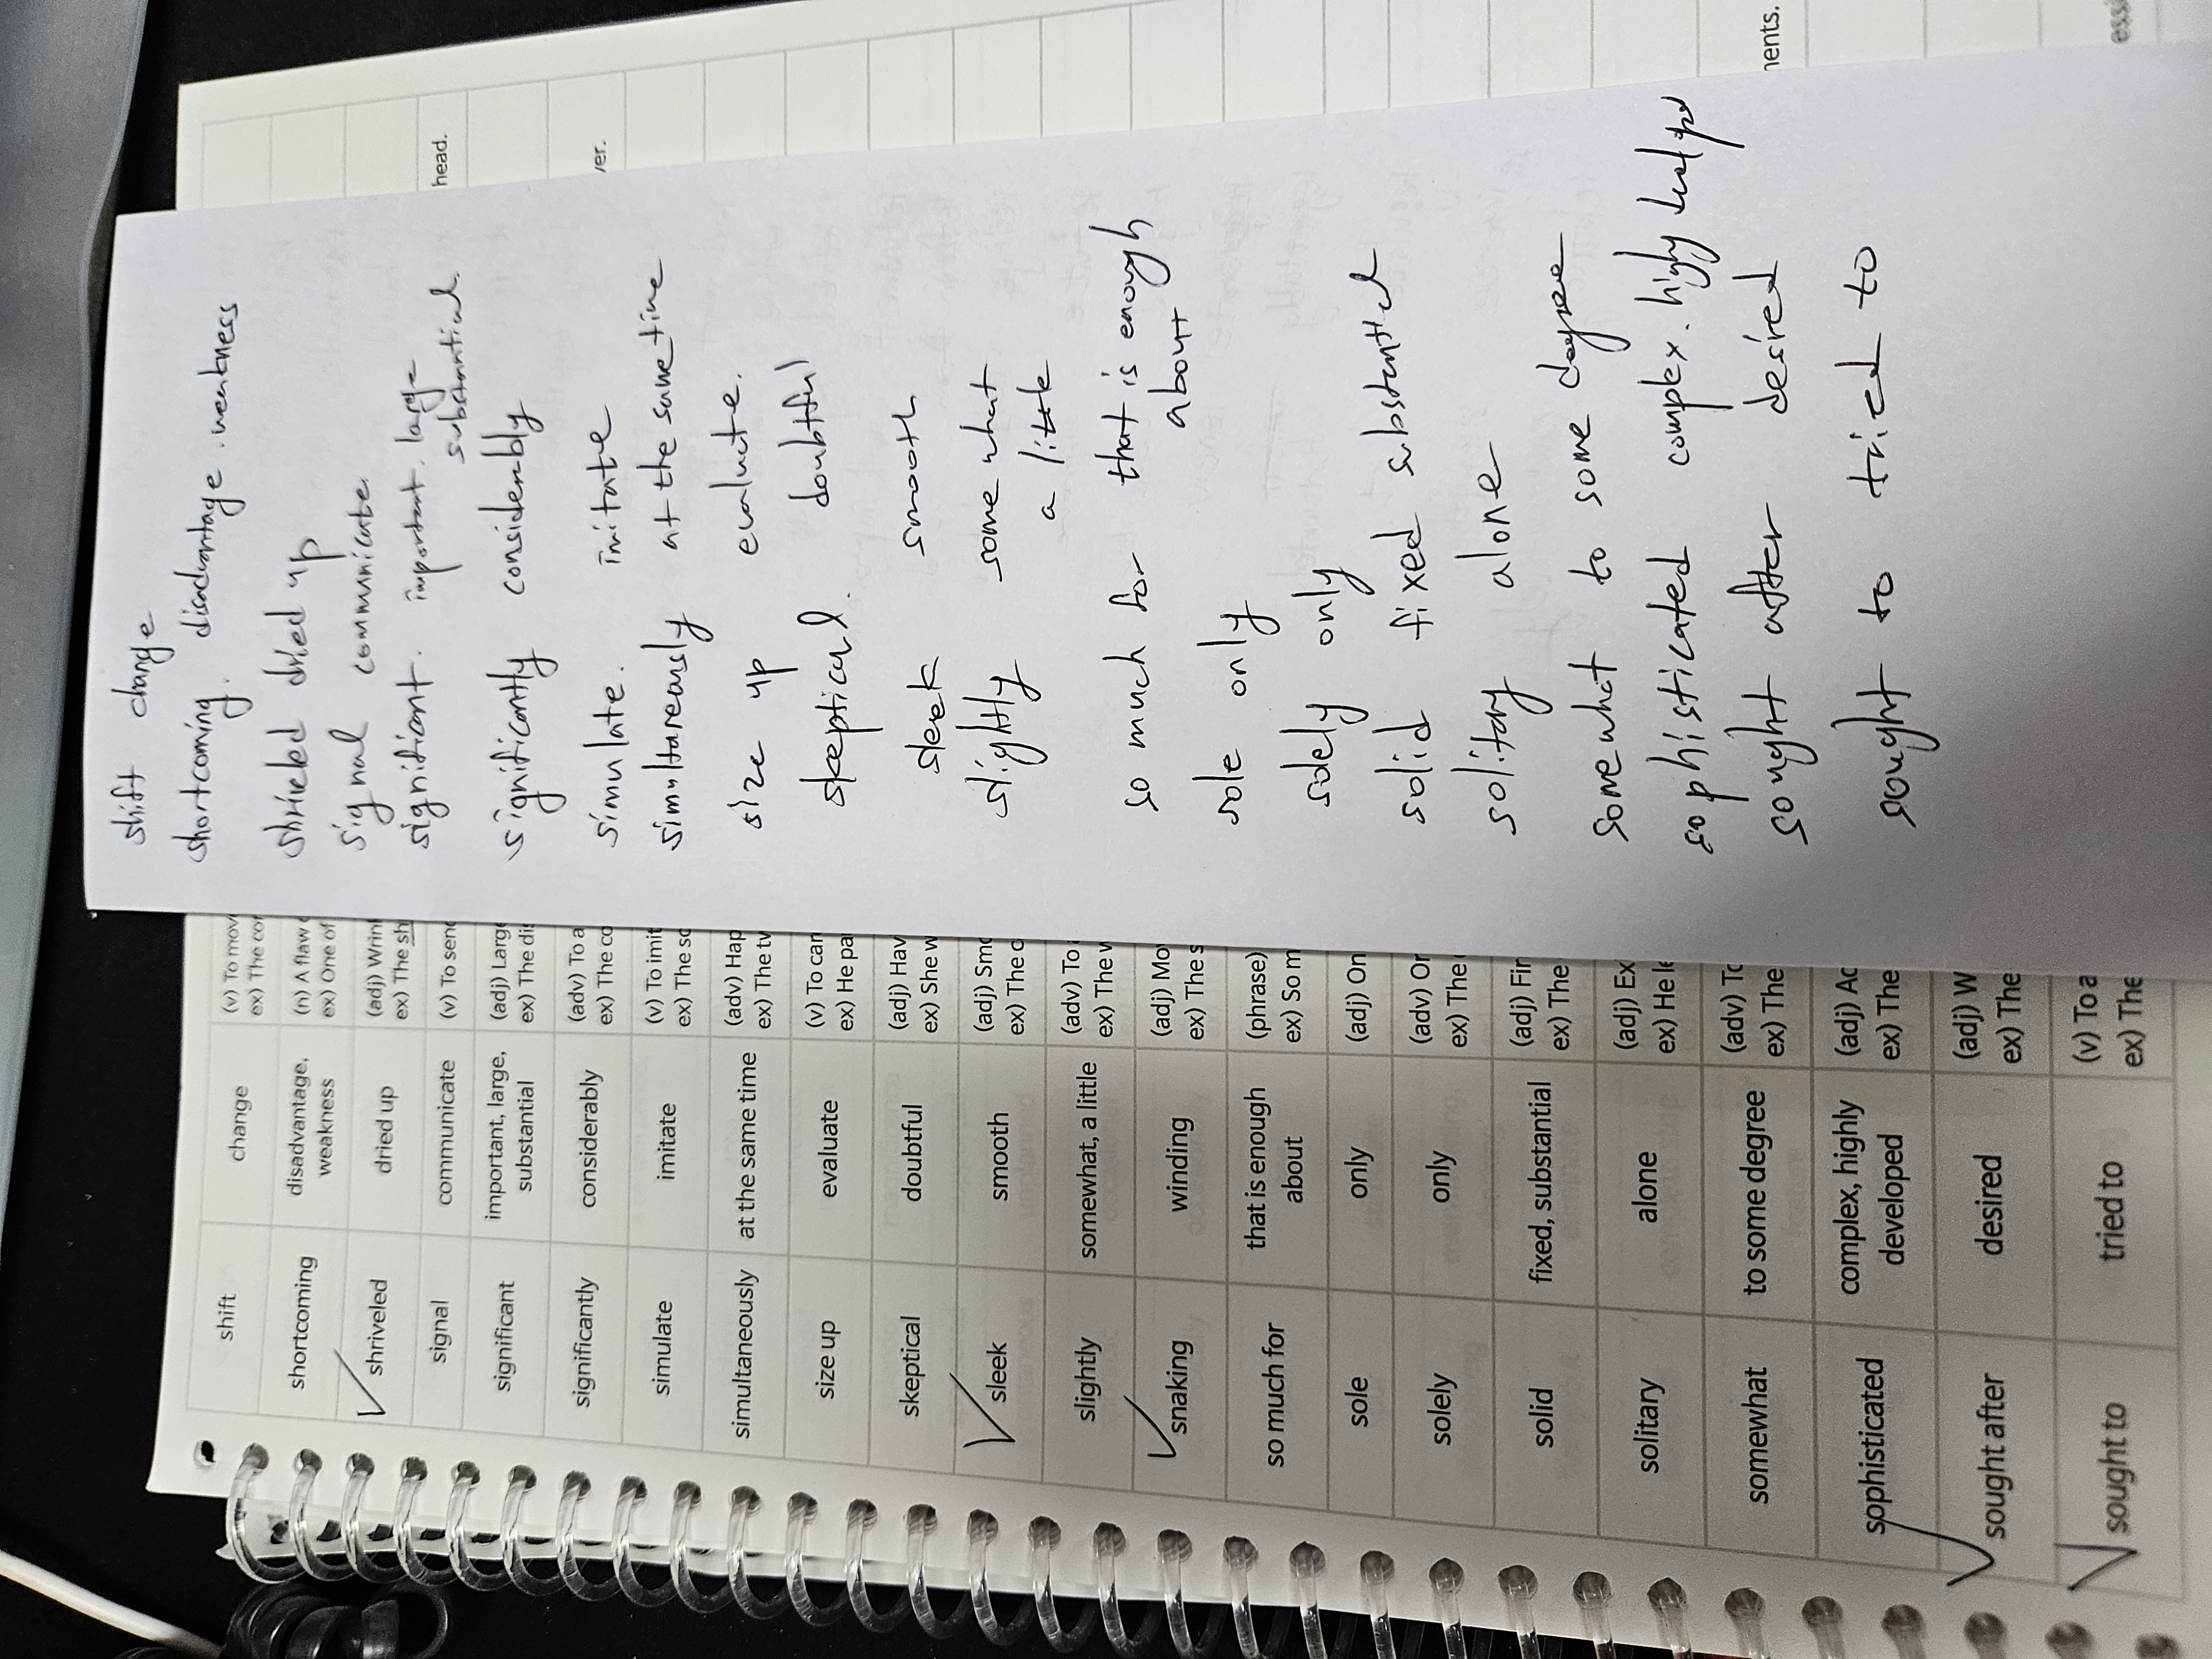 shift change
shortcoming. disadvantage. weakness
shrieled dried up
signal communicate
significant. important. large
substantial.
significantly considerably
simulate. imitate
simultareously at the same time
size up evaluate.
skeptical. doubtful
sleek smooth
slightly some what
a little
so much for that is enough
about
sole only
solely only
solid fixed substantial
solitary alone
somewhat to some degree
sophisticated complex. highy
sought after desired
sought to tried to
head.
ver.
ments.
shift change (v) To mov
ex) The co
shortcoming disadvantage, (n) A flaw
weakness ex) One of
shriveled dried up (adj) Wrin
ex) The sh
signal communicate (v) To send
significant important, large, (adj) Large
substantial ex) The di
significantly considerably (adv) To a
ex) The co
simulate imitate (v) To imit
ex) The sc
simultaneously at the same time (adv) Hap
ex) The tw
size up evaluate (v) To car
ex) He pa
skeptical doubtful (adj) Hav
ex) She w
sleek smooth (adj) Smo
ex) The c
slightly somewhat, a little (adv) To
ex) The v
snaking winding (adj) Mo
ex) The s
so much for that is enough (phrase)
about ex) So m
sole only (adj) On
solely only (adv) Or
ex) The
solid fixed, substantial (adj) Fir
ex) The
solitary alone (adj) Ex
ex) He le
somewhat to some degree (adv) To
ex) The
sophisticated complex, highly (adj) Ac
developed ex) The
sought after desired (adj) W
ex) The
sought to tried to (v) To a
ex) The